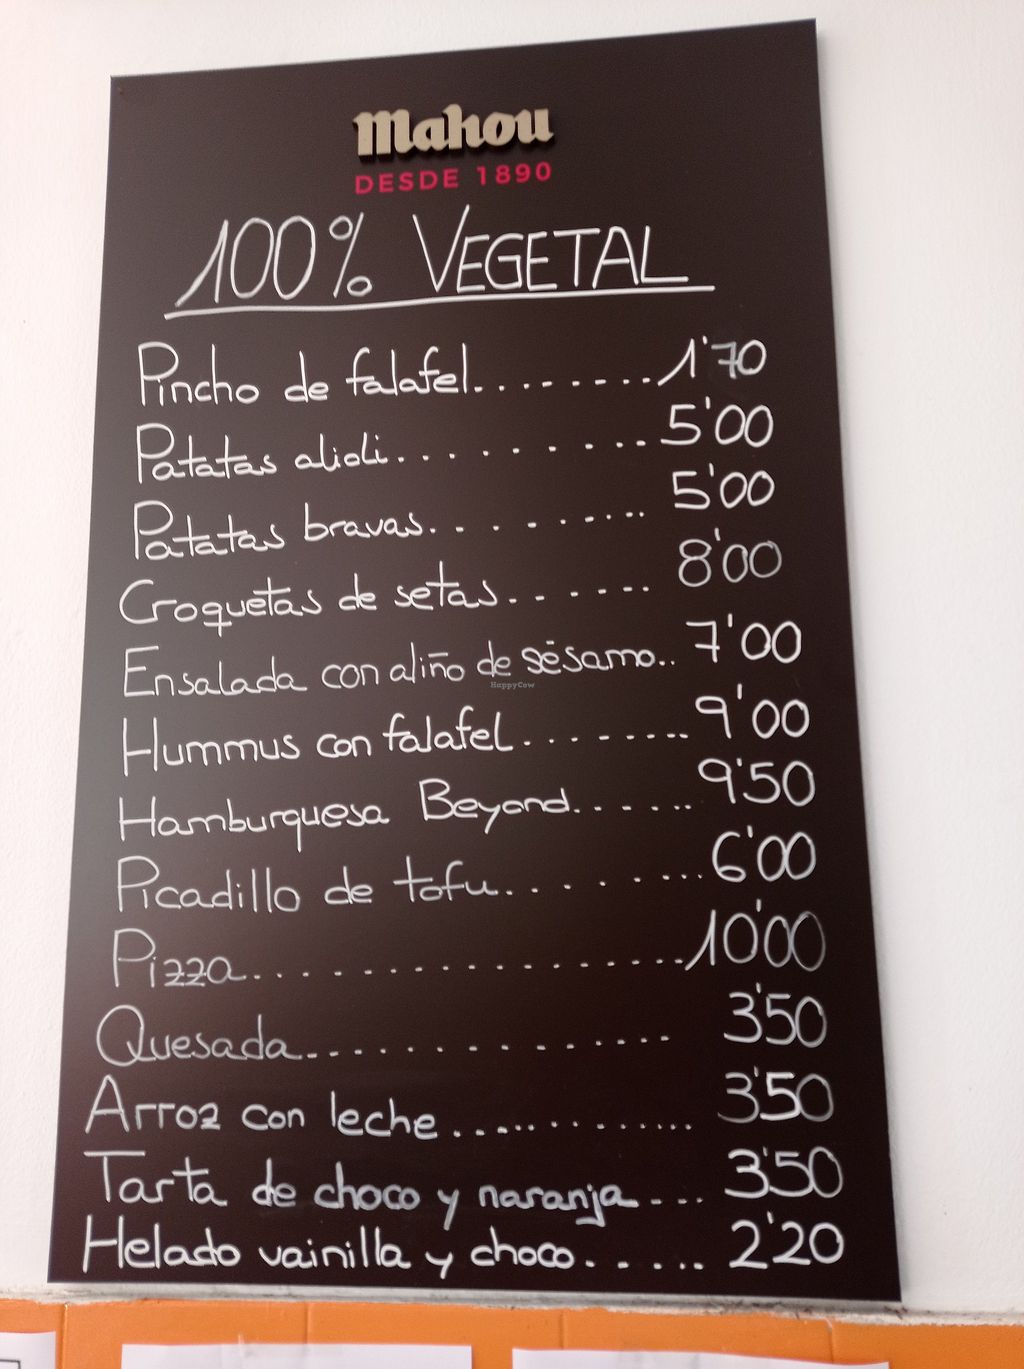 Mahou
DESDE 1890
100% VEGETAL
Pincho de falafel........1'70
Patatas alioli.........5'00
Patatas bravas.........5'00
Croquetas de setas.......8'00
Ensalada con aliño de sésamo..7'00
HappyCow
Hummus con falafel........9'00
Hamburquesa Beyond......9'50
Picadillo de tofu........6'00
Pizza.................10'00
Quesada...............3'50
Arroz con leche.............3'50
Tarta de choco y naranja...3'50
Helado vainilla y choco......2'20